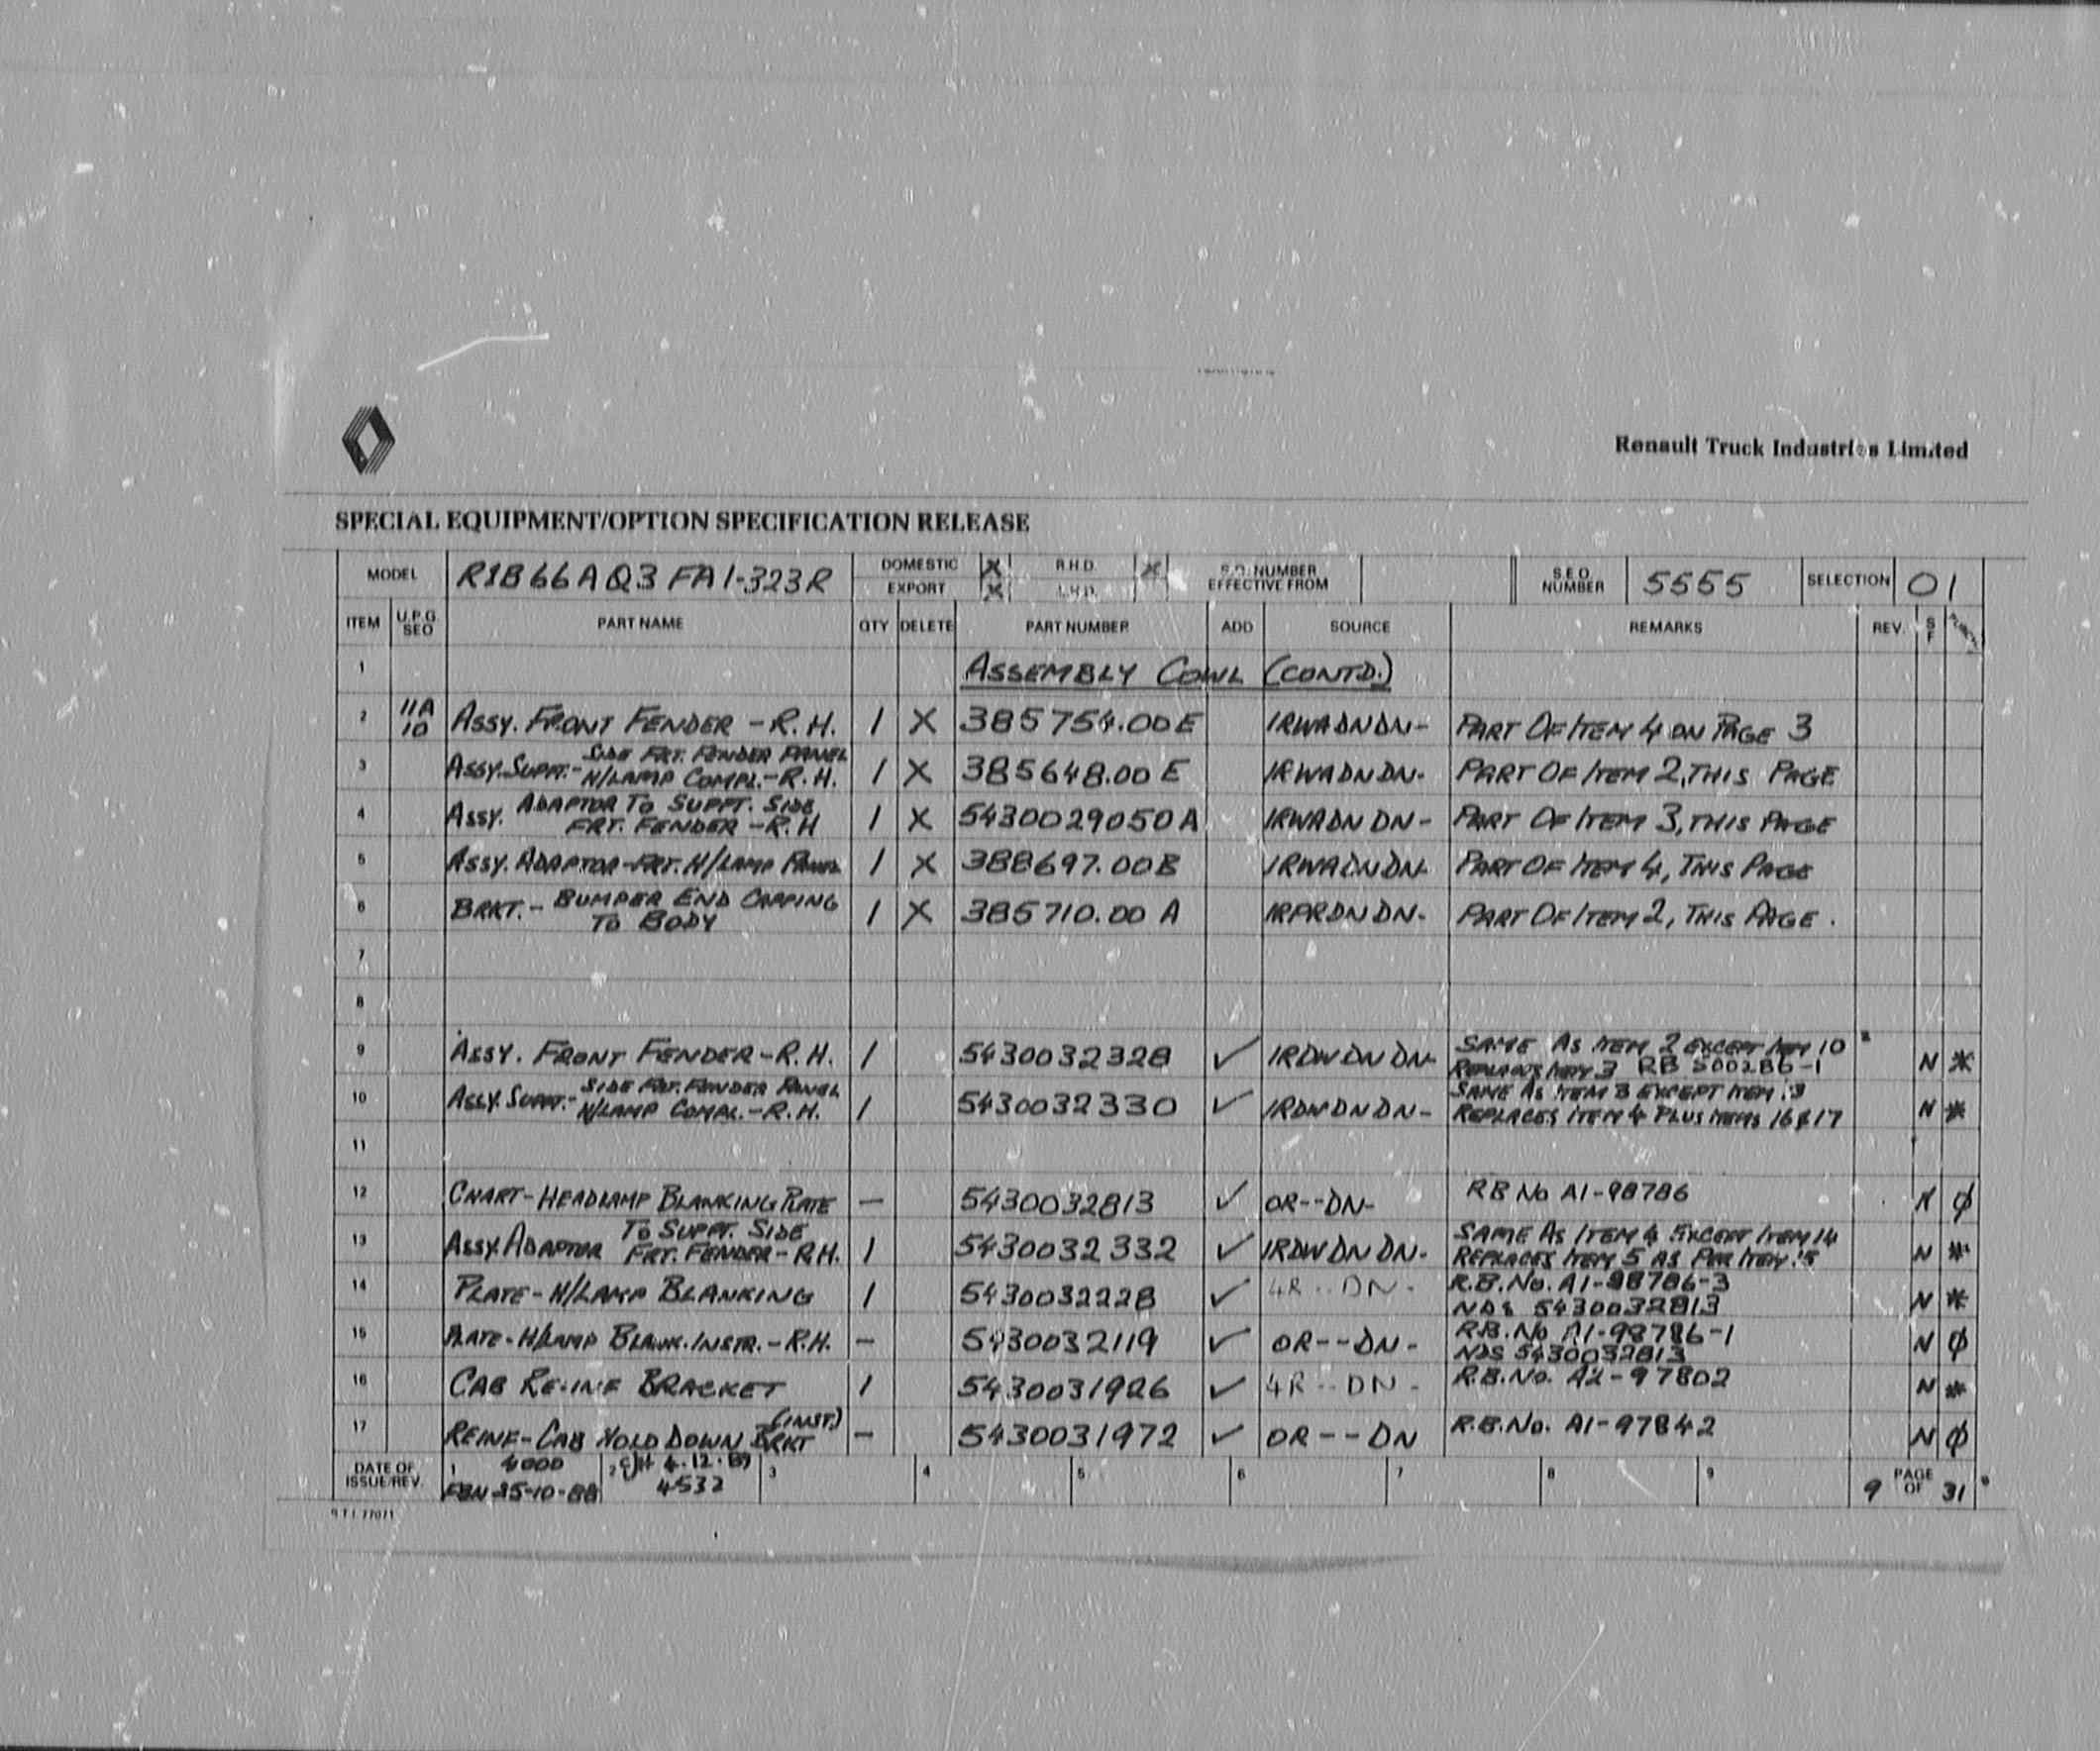 Renault Truck Industries Limited
SPECIAL EQUIPMENT/OPTION SPECIFICATION RELEASE
MODEL R1B66AQ3 FA1-323R DOMESTIC X R.H.D. X S.O. NUMBER EFFECTIVE FROM S.E.O. NUMBER 5555 SELECTION 01
EXPORT X L.H.D.
ITEM U.P.G. SEO PART NAME QTY DELETE PART NUMBER ADD SOURCE REMARKS REV. S F
1 ASSEMBLY COWL (CONTD.)
2 11A 10 ASSY. FRONT FENDER - R.H. 1 X 385754.00E IRWADNDN- PART OF ITEM 4 ON PAGE 3
3 ASSY. SUPPT.- SIDE FRT. FENDER PANEL H/LAMP COMPL.-R.H. 1 X 385648.00 E IRWADNDN- PART OF ITEM 2, THIS PAGE
4 ASSY. ADAPTOR TO SUPPT. SIDE FRT. FENDER - R.H 1 X 5430029050A IRWADN DN- PART OF ITEM 3, THIS PAGE
5 ASSY. ADAPTOR-FRT. H/LAMP PANEL 1 X 388697.00B IRWADNDN- PART OF ITEM 4, THIS PAGE
6 BRKT.- BUMPER END CAPPING TO BODY 1 X 385710.00 A IRPRDNDN- PART OF ITEM 2, THIS PAGE.
7
8
9 ASSY. FRONT FENDER-R.H. 1 5430032328 ✓ IRDWDNDN- SAME AS ITEM 2 EXCEPT ITEM 10 REPLACES ITEM 3 RB 500286-1 N *
10 ASSY. SUPPT.- SIDE FRT. FENDER PANEL H/LAMP COMPL.-R.H. 1 5430032330 ✓ IRDWDNDN- SAME AS ITEM 3 EXCEPT ITEM 13 REPLACES ITEM 4 PLUS ITEMS 16 & 17 N *
11
12 CHART-HEADLAMP BLANKING PLATE - 5430032813 ✓ OR--DN- RB No A1-98786 N ϕ
13 ASSY. ADAPTOR TO SUPPT. SIDE FRT. FENDER-R.H. 1 5430032332 ✓ IRDWDNDN- SAME AS ITEM 4 EXCEPT ITEM 14 REPLACES ITEM 5 AS PER ITEM 15 N *
14 PLATE-H/LAMP BLANKING 1 5430032228 ✓ 4R--DN- R.B. No. A1-98786-3 NDS 5430032813 N *
15 PLATE-H/LAMP BLANK. INSTR.-R.H. - 5430032119 ✓ OR--DN- R.B. No A1-98786-1 NDS 5430032813 N ϕ
16 CAB RE-INF BRACKET 1 5430031926 ✓ 4R--DN- R.B. No. A2-97802 N *
17 REINF-CAB HOLD DOWN BRKT (INST.) - 5430031972 ✓ OR--DN R.B. No. A1-97842 N ϕ
DATE OF ISSUE/REV. 1 4000 25-10-88 4.12.89 4532 3 4 5 6 7 8 9 9 PAGE OF 31
R.T.I. 77071